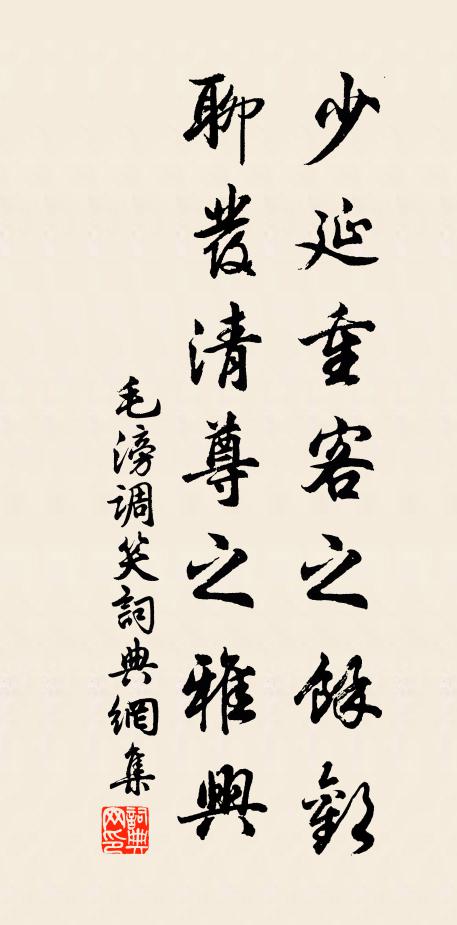 少延重客之餘歡
聊發清尊之雅興
毛滂調笑詞典網集
詞典網印